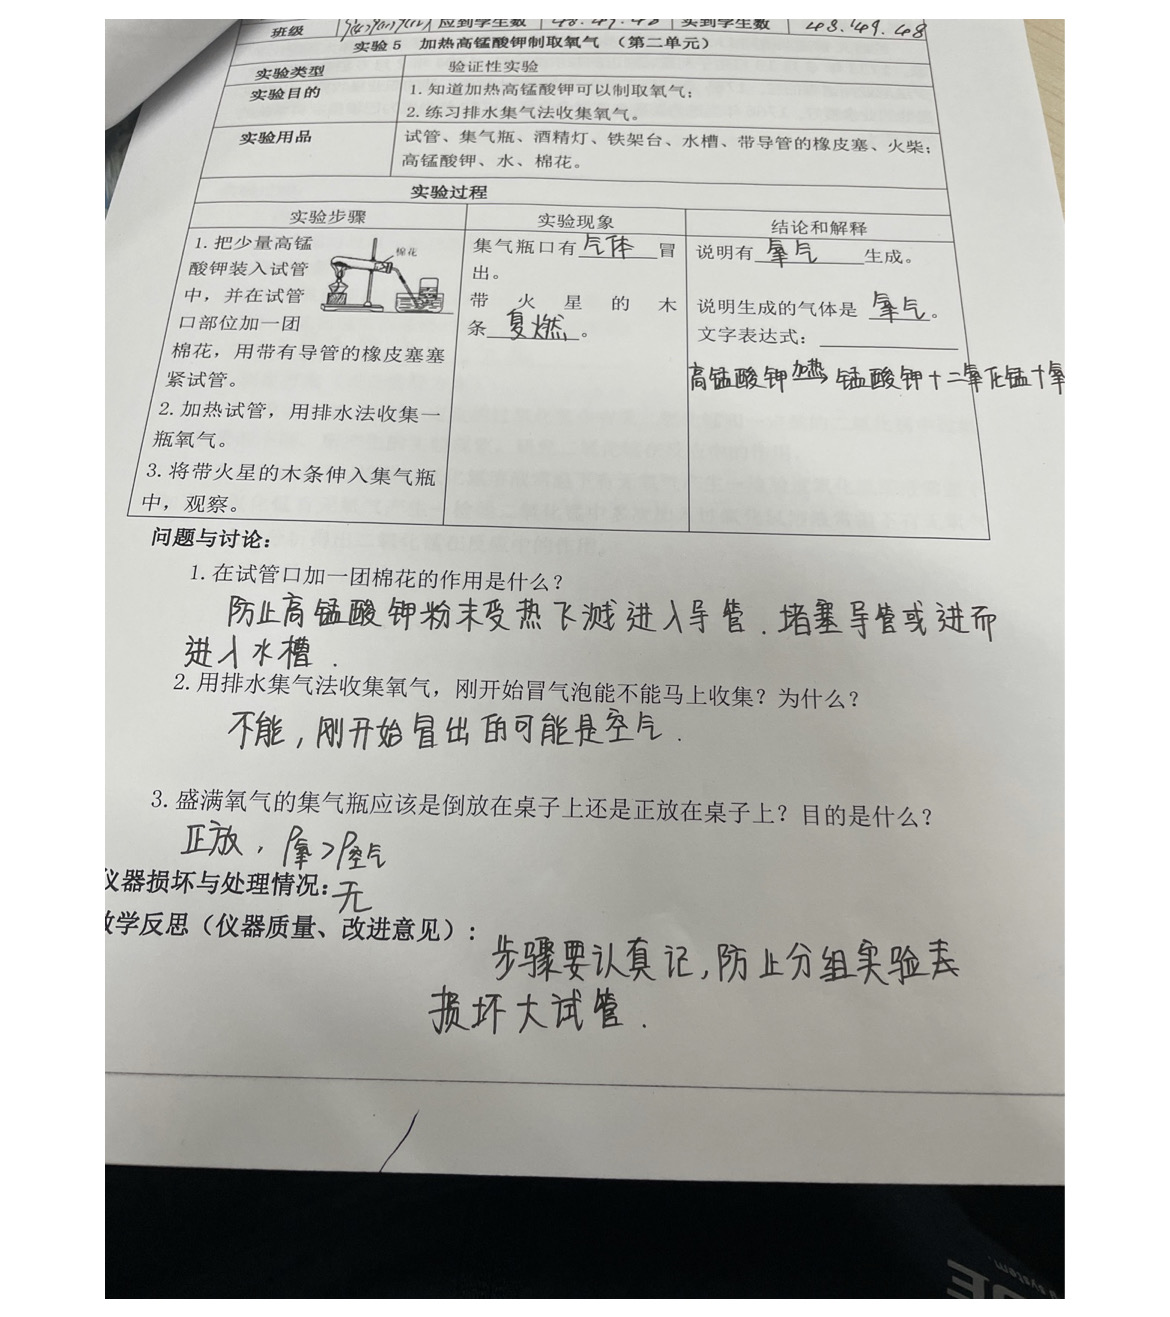 班级 应到学生数 48.49.48 实到学生数 48.49.48
实验5 加热高锰酸钾制取氧气 （第二单元）
实验类型 验证性实验
实验目的 1.知道加热高锰酸钾可以制取氧气；
2.练习排水集气法收集氧气。
实验用品 试管、集气瓶、酒精灯、铁架台、水槽、带导管的橡皮塞、火柴；
高锰酸钾、水、棉花。
实验过程
实验步骤 实验现象 结论和解释
1.把少量高锰
酸钾装入试管
中，并在试管
口部位加一团
棉花，用带有导管的橡皮塞塞
紧试管。
2.加热试管，用排水法收集一
瓶氧气。
3.将带火星的木条伸入集气瓶
中，观察。
棉花
集气瓶口有气体冒
出。
带火星的木
条复燃。
说明有氧气生成。
说明生成的气体是氧气。
文字表达式：
高锰酸钾加热→锰酸钾+二氧化锰+氧
问题与讨论：
1.在试管口加一团棉花的作用是什么？
防止高锰酸钾粉末受热飞溅进入导管．堵塞导管或进而
进入水槽．
2.用排水集气法收集氧气，刚开始冒气泡能不能马上收集？为什么？
不能，刚开始冒出的可能是空气．
3.盛满氧气的集气瓶应该是倒放在桌子上还是正放在桌子上？目的是什么？
正放，ρ氧>ρ空气
仪器损坏与处理情况：无
教学反思（仪器质量、改进意见）：
步骤要认真记，防止分组实验
损坏大试管．
system